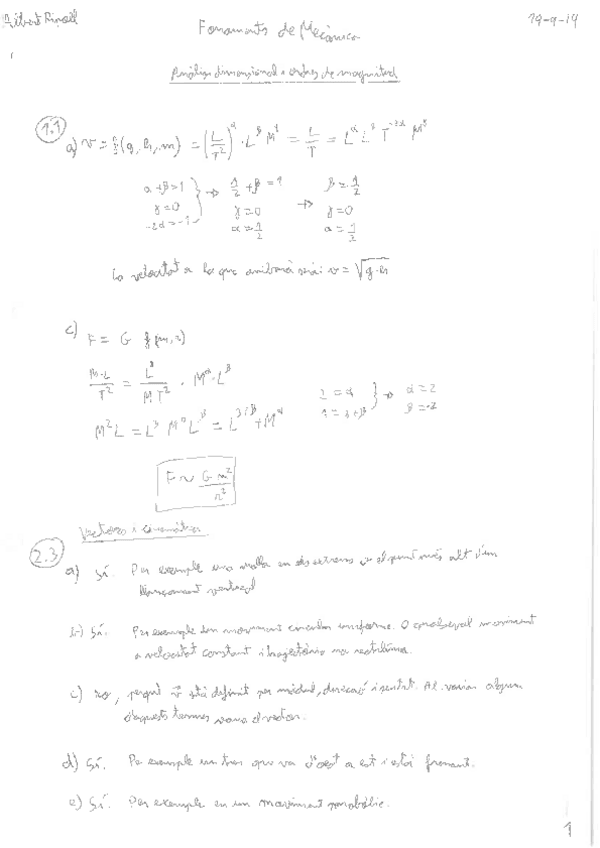 Albert Ripoll
Fonaments de Mecànica
19-9-14
Anàlisi dimensional i ordres de magnitud
1.1
a) v = f(g, h, m) = (L/T²)^α · L^β M^γ = L/T = L^α L^β T^-2α M^γ
α+β=1 → 1/2 + β = 1 → β = 1/2
γ=0 γ=0 γ=0
-2α=-1 α=1/2 α=1/2
La velocitat a la que arribarà serà: v = √g·h
c) F = G f(m, r)
M·L/T² = L³/MT² · M^α · L^β
2 = α → α = 2
1 = 3+β β = -2
M²L = L³ M^α L^β = L^3+β + M^α
F ~ G m²/r²
Vectors i cinemàtica
2.3
a) Sí. Per exemple una molla en els extrems o el punt més alt d'un
llançament vertical
b) Sí. Per exemple un moviment circular uniforme. O qualsevol moviment
a velocitat constant i trajectòria no rectilínia.
c) no, perquè v està definit per mòdul, direcció i sentit. Al variar algun
d'aquests termes varia el vector.
d) Sí. Per exemple un tren que va d'oest a est i està frenant.
e) Sí. Per exemple en un moviment parabòlic.
1